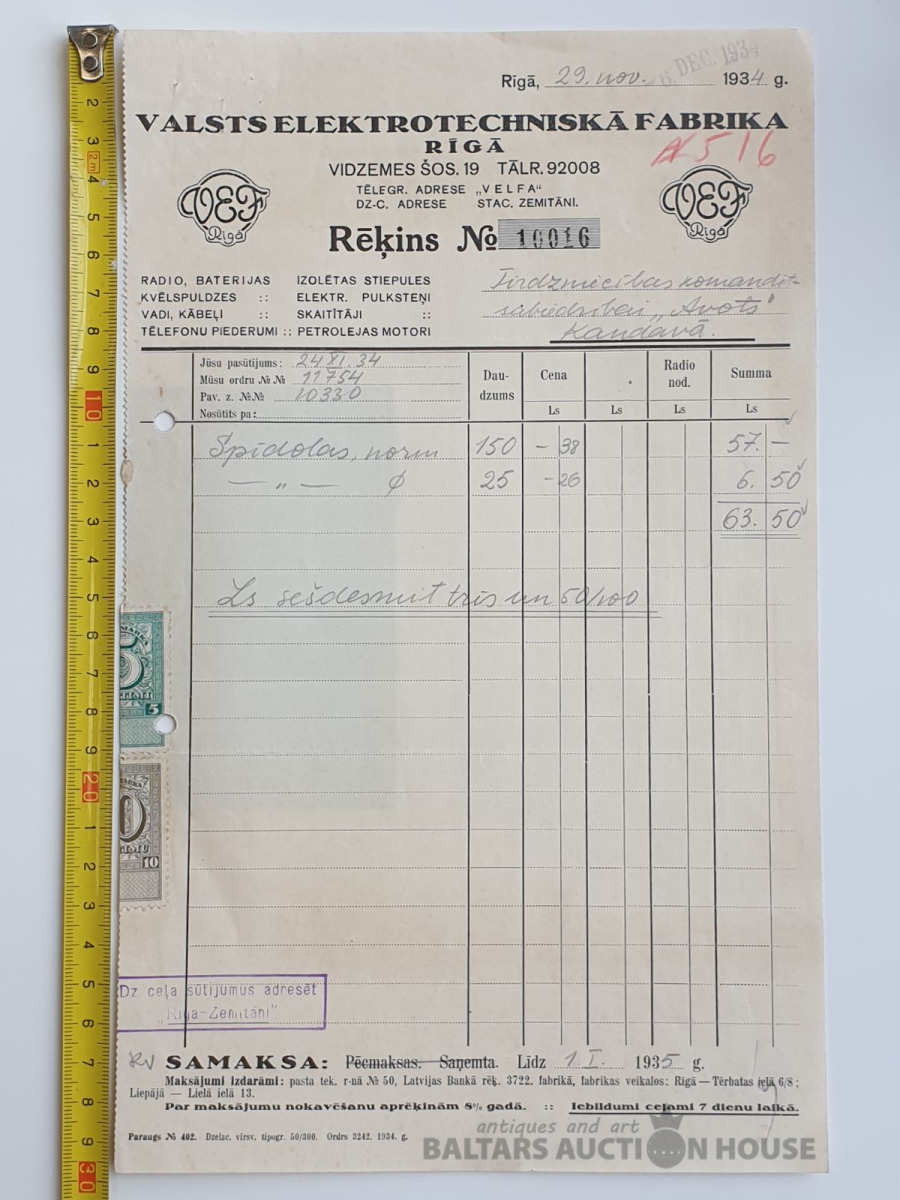 Rīgā, 29. nov. 1934 g.
6. DEC. 1934
VALSTS ELEKTROTECHNISKĀ FABRIKA
RĪGĀ
N 516
VIDZEMES ŠOS. 19 TĀLR. 92008
TĒLEGR. ADRESE „VELFA“
DZ-C. ADRESE STAC. ZEMITĀNI.
VEF Rīgā
VEF Rīgā
Rēķins № 10016
RADIO, BATERIJAS IZOLĒTAS STIEPULES
KVĒLSPULDZES :: ELEKTR. PULKSTEŅI
VADI, KĀBEĻI :: SKAITĪTĀJI ::
TĒLEFONU PIEDERUMI :: PETROLEJAS MOTORI
Tirdzniecības komandit-
sabiedrībai „Avots“
Kandavā.
Jūsu pasūtījums: 24 XI. 34
Mūsu ordru №№ 11754
Pav. z. №№ 10330
Nosūtīts pa:
Dau-dzums Cena Radio nod. Summa
Ls Ls Ls Ls
Spīdolas, norm 150 – 38 57. –
— „ — ø 25 – 26 6. 50
63. 50
Ls sešdesmit trīs un 50/100
5
10
Dz ceļa sūtījumus adresēt
„Rīga-Zemitāni”
SAMAKSA: Pēcmaksas. Saņemta. Līdz 1 I. 1935 g.
Maksājumi izdarāmi: pasta tek. r-nā № 50, Latvijas Bankā rēķ. 3722. fabrikā, fabrikas veikalos: Rīgā — Tērbatas ielā 6/8;
Liepājā — Lielā ielā 13.
Par maksājumu nokavēšanu aprēķinām 8% gadā. :: Iebildumi ceļami 7 dienu laikā.
Paraugs № 402. Dzelzc. virsv. tipogr. 50/300. Ordrs 3242. 1934. g.
antiques and art
BALTARS AUCTION HOUSE